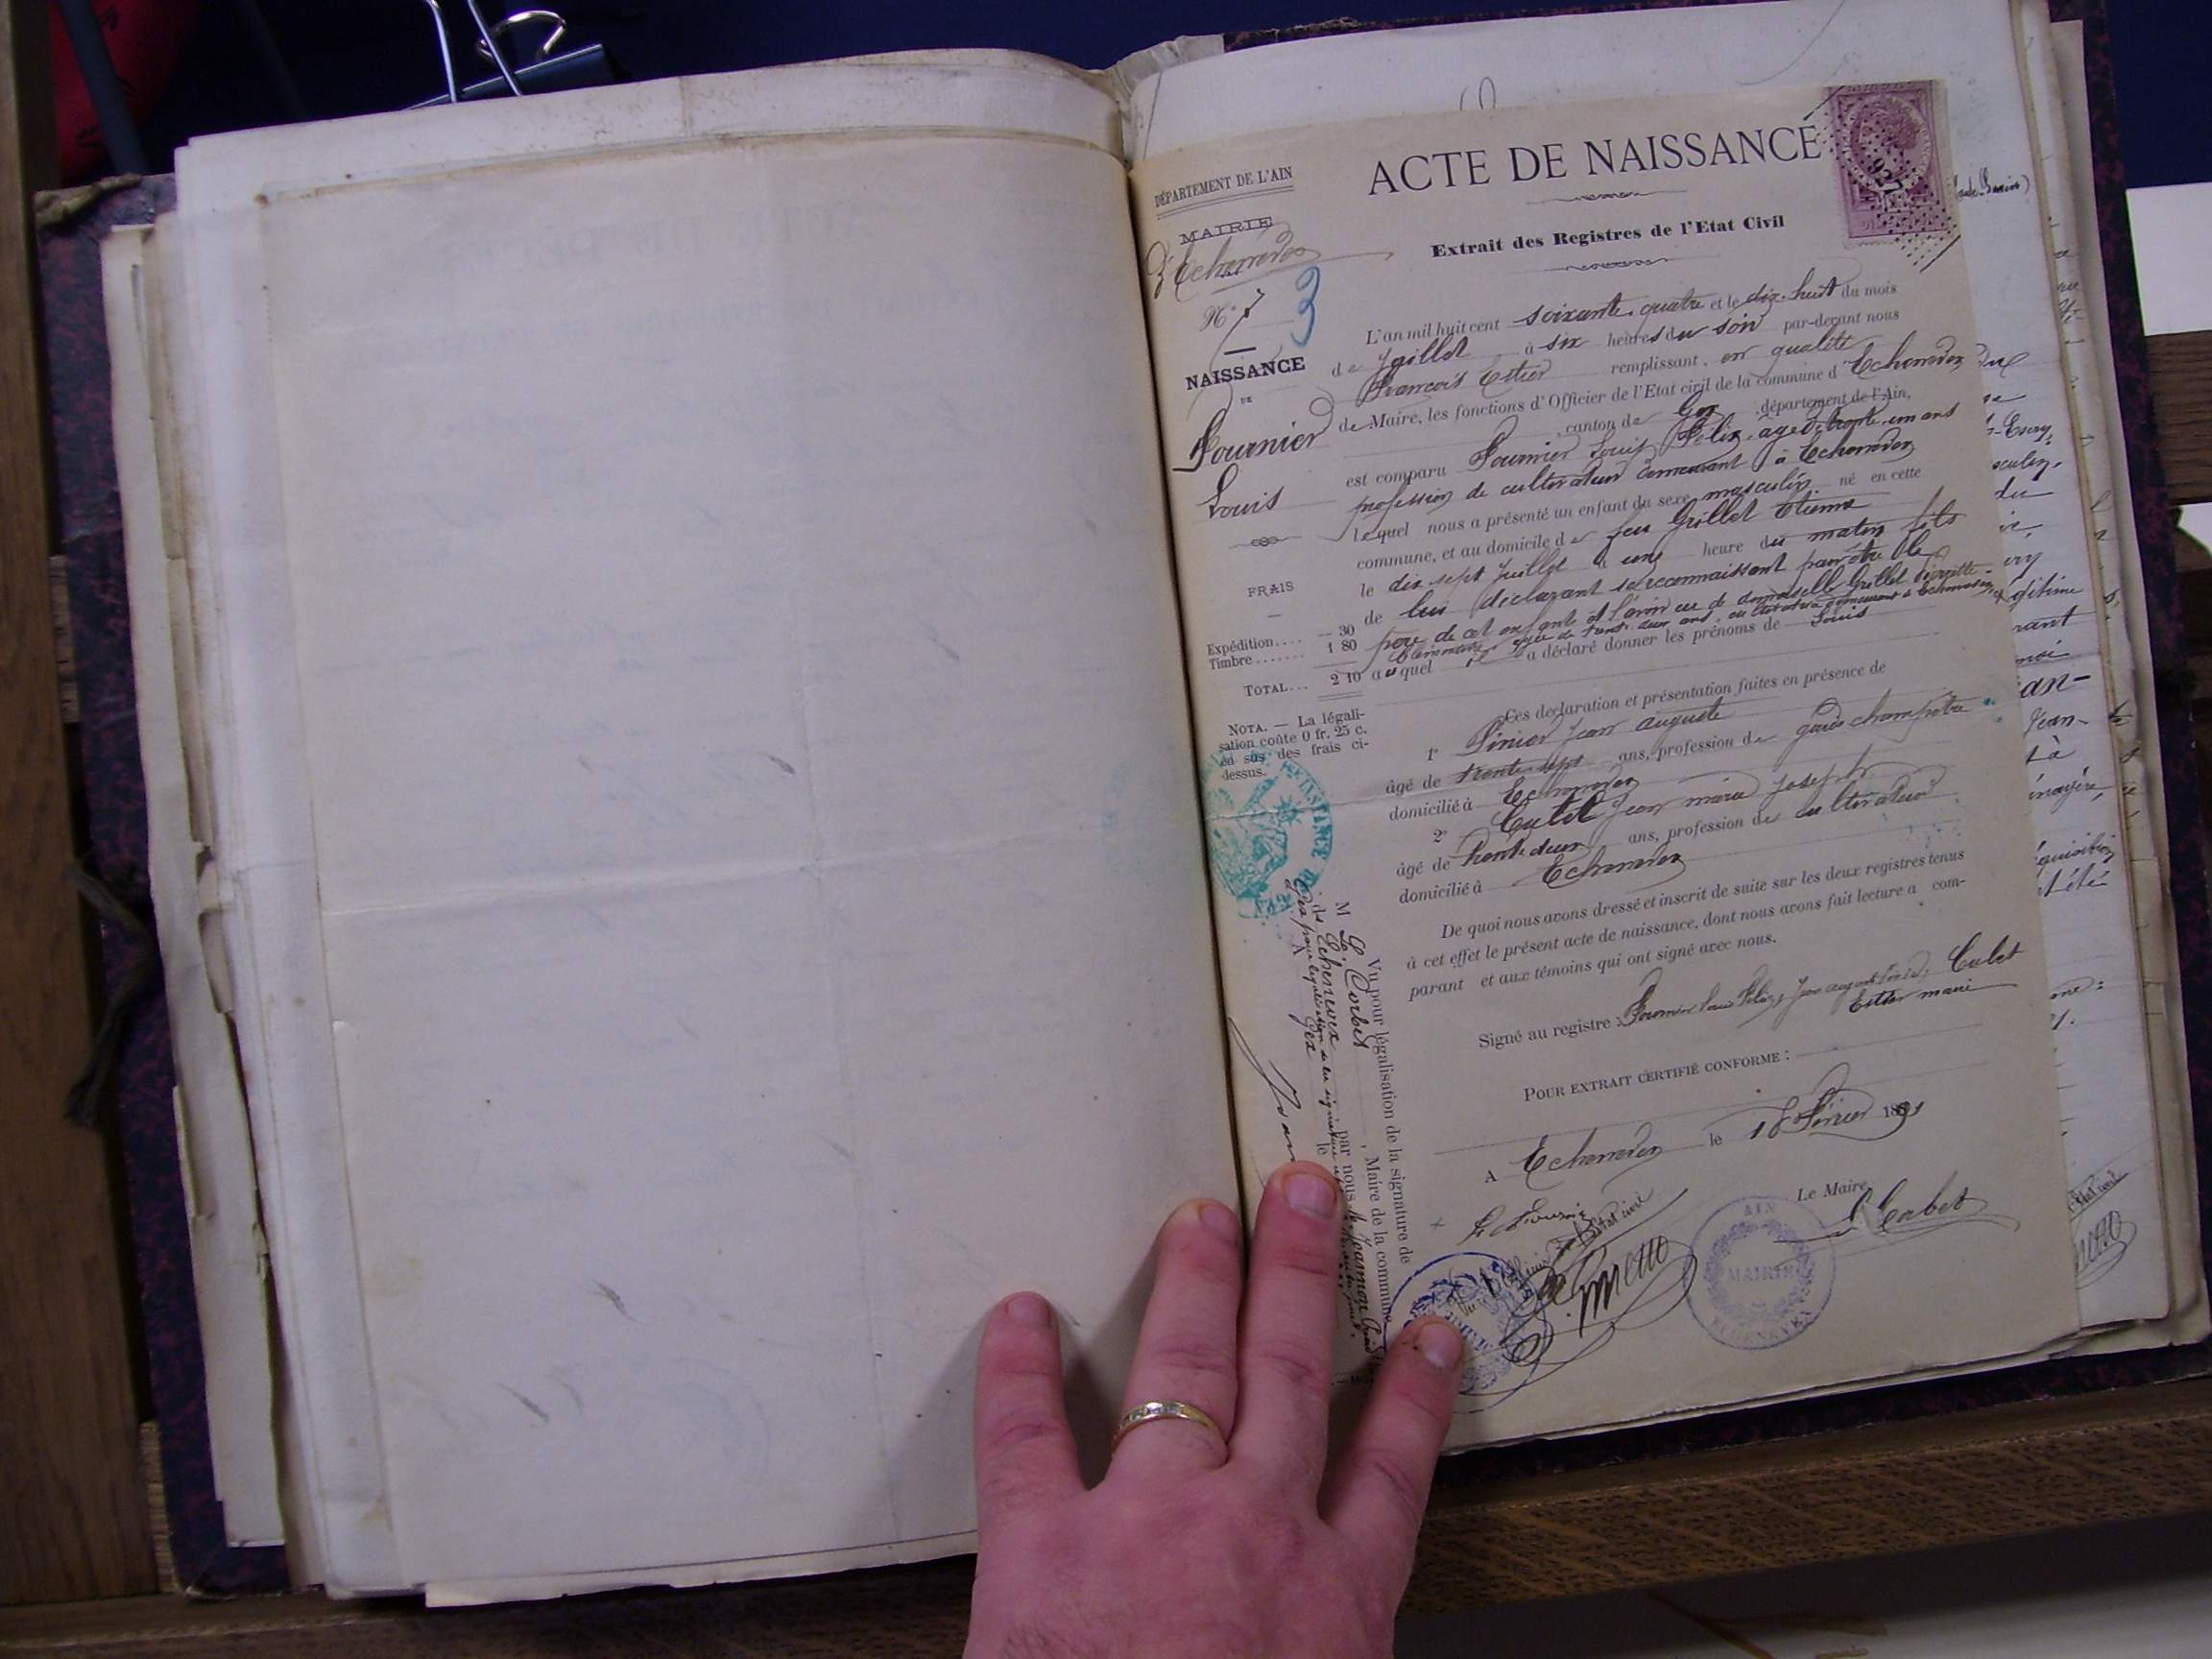 ACTE DE NAISSANCE
Extrait des Registres de l'Etat Civil
DÉPARTEMENT DE L'AIN
MAIRIE
d'Echenevex
N° 7
3
NAISSANCE
DE
Fournier
Louis
FRAIS
Expédition.... -- 30
Timbre....... 1 80
TOTAL... 2 10
NOTA. — La légali-
sation coûte 0 fr. 25 c.
en sus des frais ci-
dessus.
L'an mil huit cent soixante-quatre et le dix-huit du mois
de Juillet à six heures du soir par-devant nous
François Estier remplissant, en qualité
de Maire, les fonctions d'Officier de l'Etat civil de la commune d'Echenevex
, canton de Gex département de l'Ain,
est comparu Fournier Louis Félix, âgé de trente un ans
profession de cultivateur demeurant à Echenevex
lequel nous a présenté un enfant du sexe masculin né en cette
commune, et au domicile de feu Grillet Etienne
le dix sept Juillet à une heure du matin fils
de lui déclarant se reconnaissant pour être le
père de cet enfant et l'avoir eu de demoiselle Grillet Pierrette
âgée de trente deux ans, cultivatrice demeurant à Echenevex
auquel il a déclaré donner les prénoms de Louis
Ces déclaration et présentation faites en présence de
1° Jean Auguste
âgé de trente sept ans, profession de garde champêtre
domicilié à Echenevex
2° Culet Jean marie Joseph
âgé de trente deux ans, profession de cultivateur
domicilié à Echenevex
De quoi nous avons dressé et inscrit de suite sur les deux registres tenus
à cet effet le présent acte de naissance, dont nous avons fait lecture a com-
parant et aux témoins qui ont signé avec nous.
Signé au registre : Fournier Louis Félix, Culet
Estier maire
POUR EXTRAIT CERTIFIÉ CONFORME :
A Echenevex le 18 Février 1891
Le Maire,
L. Corbet
AIN
MAIRIE
ECHENEVEX
Vu pour légalisation de la signature de
M L. Corbet, Maire de la commune
de Echenevex par nous
A Gex le